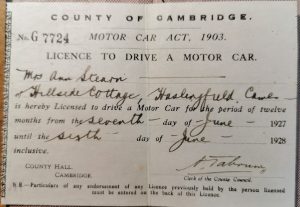 COUNTY OF CAMBRIDGE.
No. G 7724 MOTOR CAR ACT, 1903.
LICENCE TO DRIVE A MOTOR CAR.
Mrs Ann Stearn
of Hillside Cottage, Haslingfield, Cambs
is hereby Licensed to drive a Motor Car for the period of twelve
months from the seventh day of June 1927
until the sixth day of June 1928
inclusive.
COUNTY HALL,
CAMBRIDGE
Clerk of the County Council.
N.B.—Particulars of any endorsement of any Licence previously held by the person licensed
must be entered on the back of this Licence.